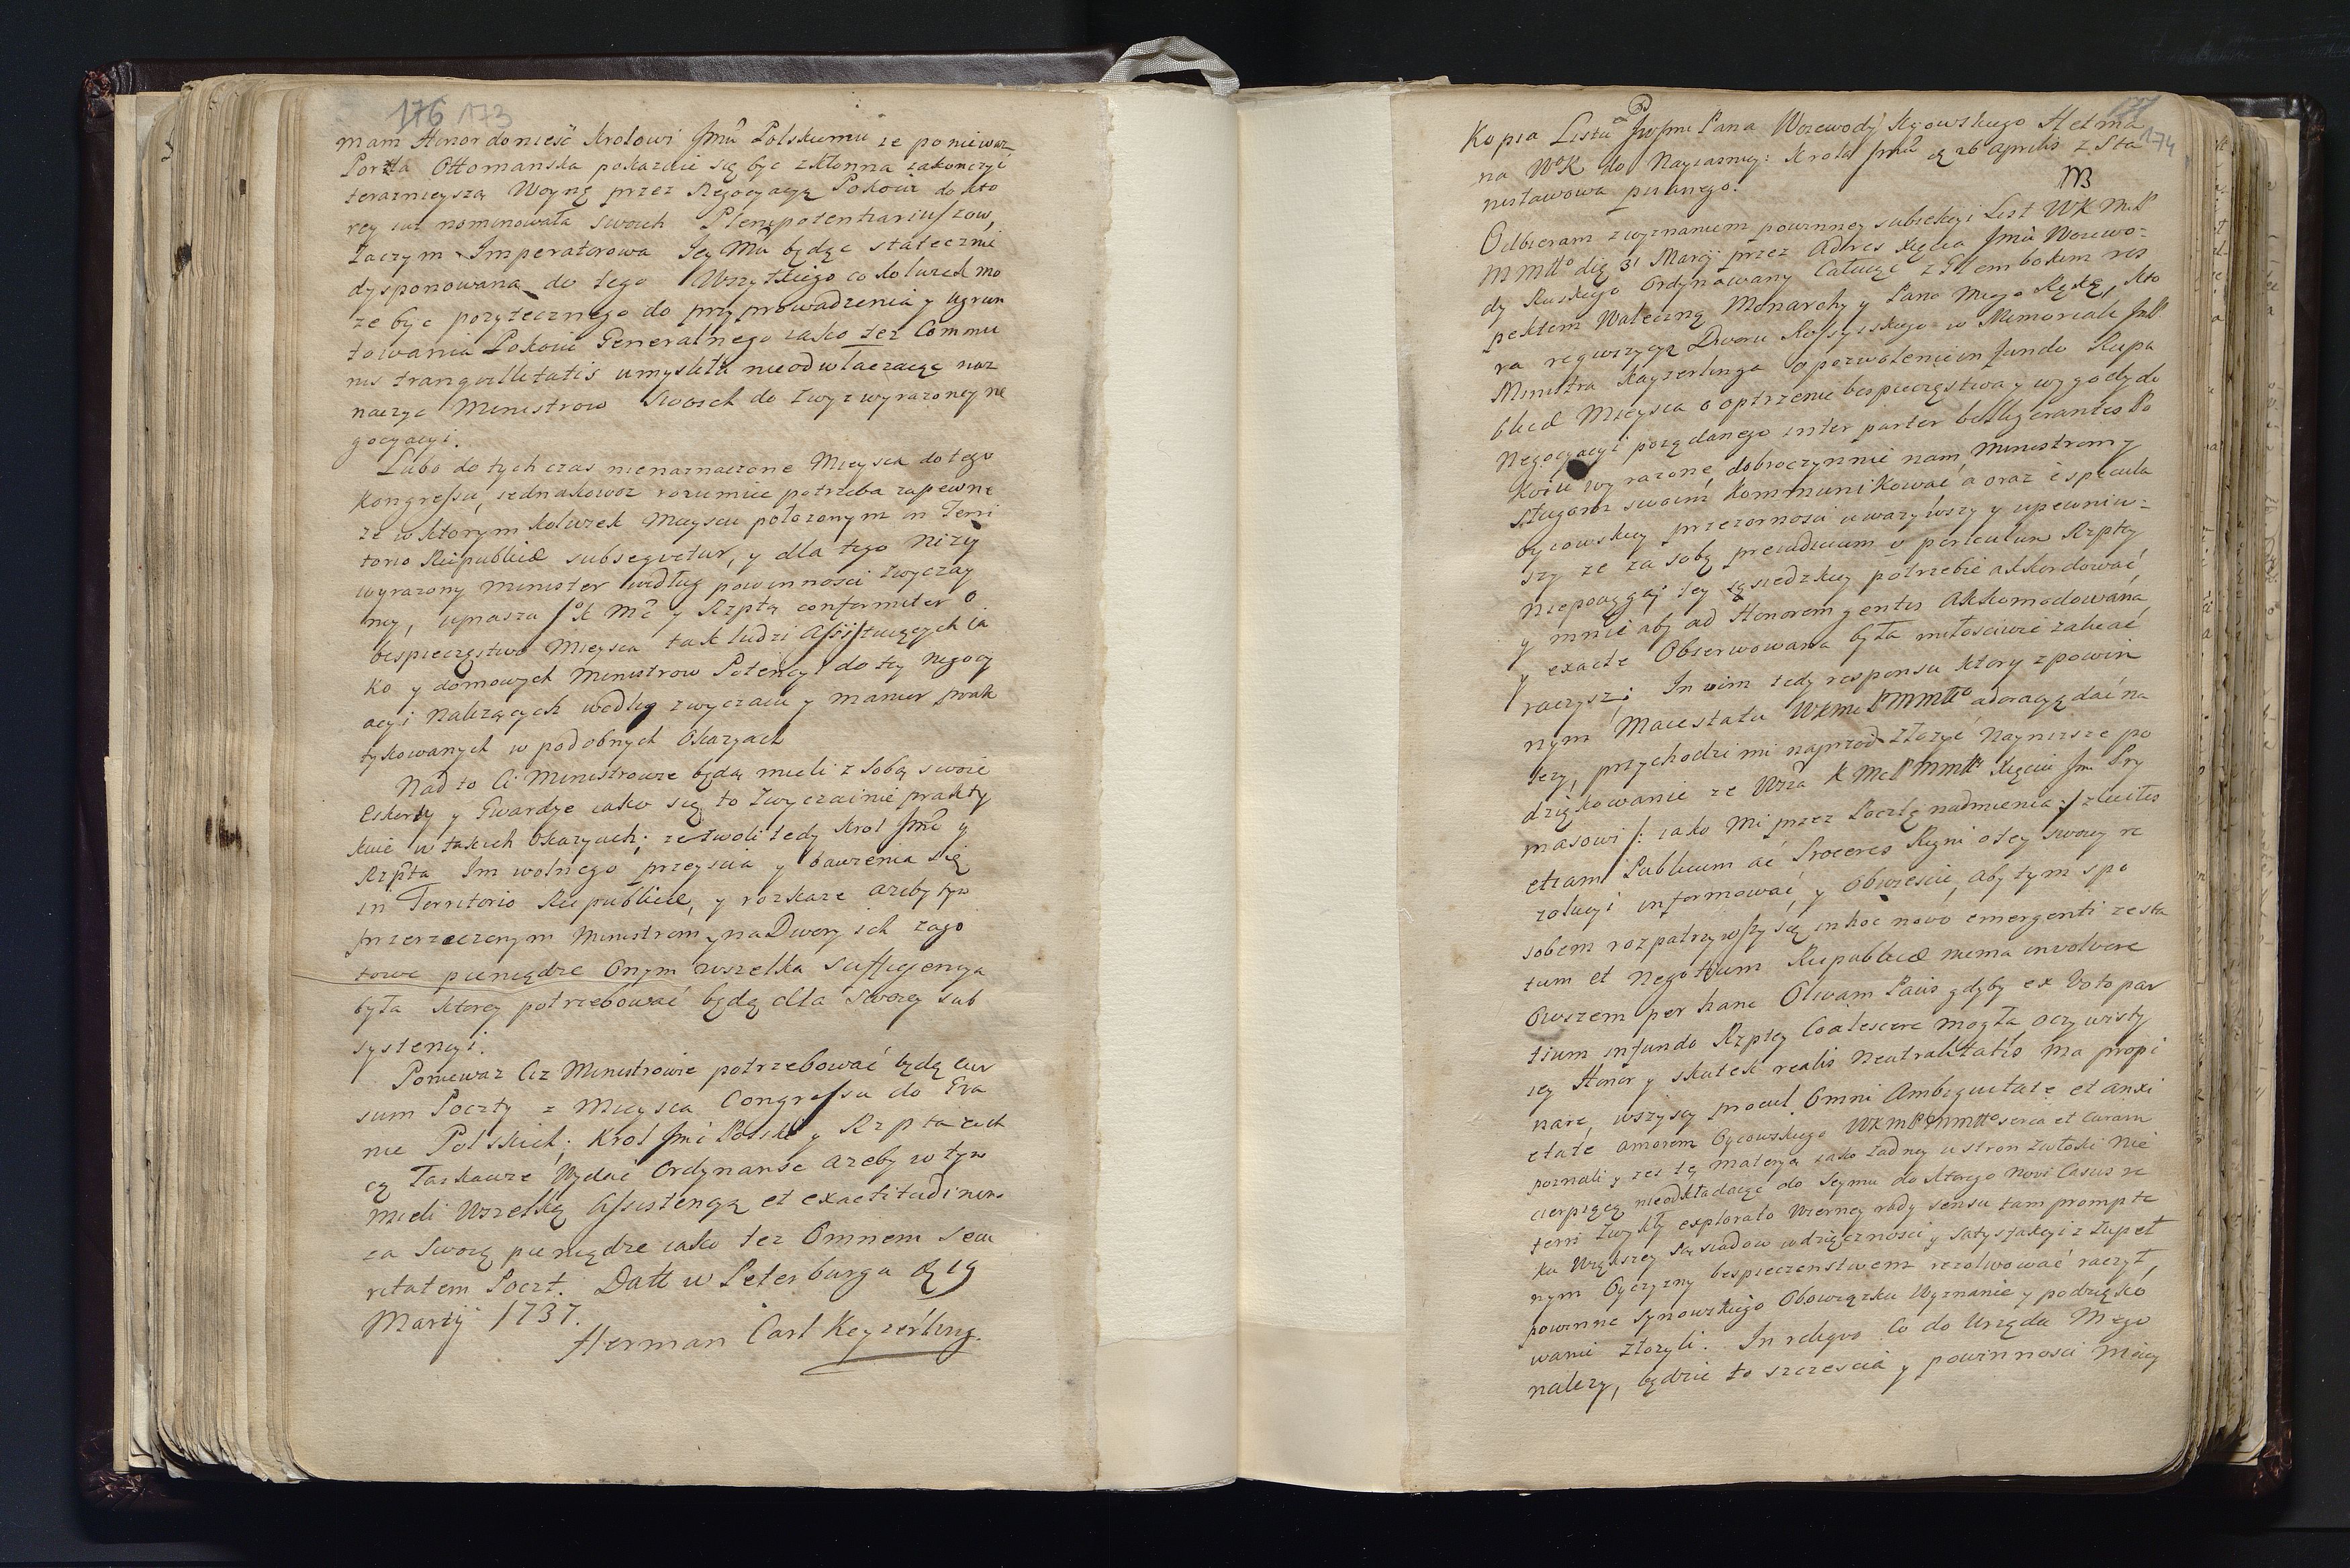 176 173
mam Honor donieść Krolowi Jmći Polskiemu ze poniewaz
Porta Ottomanska pokazuie się byc skłonna zakonczyć
teraznieyszą Woynę przez Negocyacyą Pokoiu do kto
rey iuż nominowała swoich Plenipotentiariuszow,
Zaczym Imperatorowa Jey Mć będąc statecznie
dysponowana do tego Wszytkiego co kolwiek mo
ze być pozytecznego do przyprowadzenia y ugrun
towania Pokoiu Generalnego iako tez Commu
nis tranquillitatis umysliła nieodwłaczaiąc naz
naczyc Ministrow Swoich do zwyz wyrazoney ne
gocyacyi.
Lubo do tych czas nienaznaczone Mieysca do tego
Kongressu, iednakowoz rozumiec potrzeba zapewne
ze w ktorym kolwiek Mieyscu połozonym in Terri
torio Reipublicæ subsequetur, y dla tego nizey
wyrazony Minister według powinnosci zwyczay
ney, uprasza K Mć y Rzptą conformiter o
bespieczęstwo Mieysca tak ludzi assistuiących ia
ko y domowych Ministrow Potencyi do tey negocy
acyi nalezących według zwyczaiu y manier prak
tykowanych w podobnych Okazyach
Nad to Ci Ministrowie będą mieli z sobą swoie
Eskorty y Gwardye iako się to zwyczainie prakty
kuie w takich Okazyach; ze zwoli tedy Krol Jmć y
Rzpta Im wolnego przeyscia y bawienia się
in Territorio Reipublicæ, y rozkaze azeby tym
przerzeczonym Ministrom y na Dwory ich za go
towe pieniądze Onym wszelka sufficyencya
była ktorey potrzebować będą dla swoiey sub
systencyi.
Poniewaz Ciz Ministrowie potrzebować będą cur
sum Poczty z Mieysca Congressu do Gra
nic Polskich; Krol Jmć Polski y Rzpta zech
cą Łaskawie Wydać Ordynanse azeby w tym
mieli Wszelką Assistencyą et exactitudinem
za Swoie pieniądze iako tez Omnem Secu
ritatem Poczt. Datt w Petersburgu d 19
Martÿ 1737.
Herman Carl Keyzerling.
177
174
Kopia Listu JWJmci Pana Woiewody Kyowskiego Hetma
na WoK do Nayiasnieÿ: Krola Jmći d 26 Aprilis z Sta
nisławowa pisanego.
NB
Odbieram z wyznaniem powinney subiekcyi List WKMcP
MMttº die 31 Marcÿ przez Adres Xięcia Jmći Woiewo-
dy Ruskiego Ordynowany Całuiąc z Głembokim res
pektem Waleczną Monarchy y Pana Mego Rękę, kto
ra requizycyą Dworu Rossyiskiego w Memoriale JmP.
Ministra Kayzerlinga o pozwolenie in fundo Reipu
blicæ Mieysca o optrzenie bespieczęstwa y wygody do
Negocyacyi poządanego inter partes belligerantes Po
koiu wyrazone, dobroczynnie nam Ministrom y
Sługom swoim Kommunikować a oraz e specula
Oycowskiey przezornosci uwazywszy y upewniw-
szy ze za sobą preiudicium v periculum Rzptey
niepociąga; tey sąsiedzkiey potrzebie akkordować
y mnie aby ad Honorem gentis Akkomodowana
y exacte Obserwowana była miłosciwie zalecać
raczysz; In vim tedy responsu ktory z powin
nym Maiestatu WKMcPMMttº adoracyą dać na
lezy, przychodzi mi naprzod złozyć Naynizsze po
dziękowanie ze Wsza KMcPMMttº Xięciu Jm Pry
masowi /: iako mi przez Pocztę nadmienia :/ zleciłeś
etiam Publicum ac Proceres Regni o tey swoiey re
zolucyi informować, y Obwiescić, aby tym spo
sobem rozpatrzywszy się in hoc novo emergenti ze sta
tum et Negotium Reipublicæ niema involvere
Owszem per hanc Olivam Pacis gdyby ex Voto par
tium in fundo Rzptey Coalescere mogła oczywisty
iey Honor y skutek realis Neutralitatis ma propi
nare, wszyscy procul Omni Ambiguitate et anxi
etate amorem Oycowskiego WKMPMMttº serca et curam
poznali y zes tę Materyą iako zadney ustron zwłoki nie
cierpiącą nieodkładaiąc do Seymu do ktorego novi Casus re
ferri zwykły explorato Wierney rady sensu tam prompte
ku Większey Sąsiadow wdzięcznosci y satysfakcyi z zupeł
nym Oyczyzny bespieczenstwem rezolwować raczył,
powinne Synowskiego Obowiązku Wyznanie y podzięko
wanie złozyli. In reliquo Co do Urzędu Mego
nalezy, będzie to szczescia y powinnosci moiey